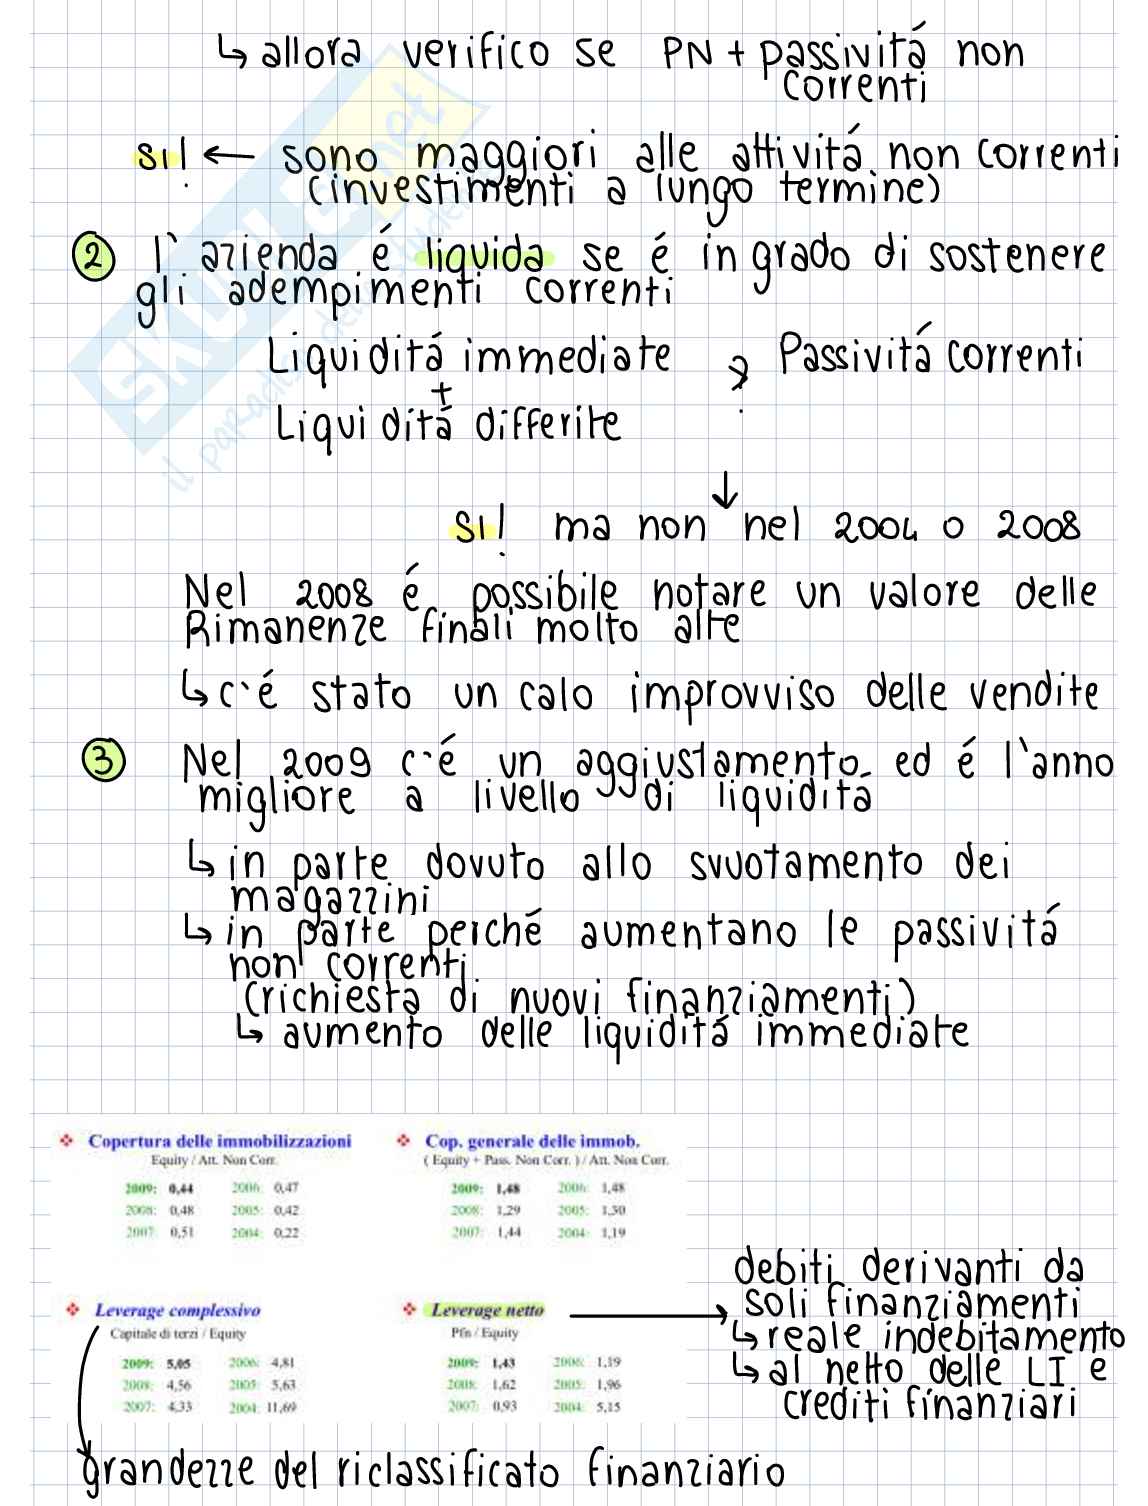 ↳ allora verifico se PN + passivitá non
correnti
si! ← sono maggiori alle attivitá non correnti
(investimenti a lungo termine)
② l'azienda é liquida se é in grado di sostenere
gli adempimenti correnti
Liquiditá immediate > Passivitá correnti
+
Liquiditá differite
↓
si! ma non nel 2004 o 2008
Nel 2008 é possibile notare un valore delle
Rimanenze finali molto alte
↳ c'é stato un calo improvviso delle vendite
③ Nel 2009 c'é un aggiustamento ed é l'anno
migliore a livello di liquiditá
↳ in parte dovuto allo svuotamento dei
magazzini
↳ in parte perché aumentano le passivitá
non correnti
(richiesta di nuovi finanziamenti)
↳ aumento delle liquiditá immediate
❖ Copertura delle immobilizzazioni
Equity / Att. Non Corr.
2009: 0,44 2006: 0,47
2008: 0,48 2005: 0,42
2007: 0,51 2004: 0,22
❖ Cop. generale delle immob.
( Equity + Pass. Non Corr. ) / Att. Non Corr.
2009: 1,48 2006: 1,48
2008: 1,29 2005: 1,30
2007: 1,44 2004: 1,19
❖ Leverage complessivo
Capitale di terzi / Equity
2009: 5,05 2006: 4,81
2008: 4,56 2005: 5,63
2007: 4,33 2004: 11,69
❖ Leverage netto
Pfn / Equity
2009: 1,43 2006: 1,19
2008: 1,62 2005: 1,96
2007: 0,93 2004: 5,15
debiti derivanti da
soli finanziamenti
↳ reale indebitamento
↳ al netto delle LI e
crediti finanziari
grandezze del riclassificato finanziario
SKUOLA.net
il paradiso dello studente